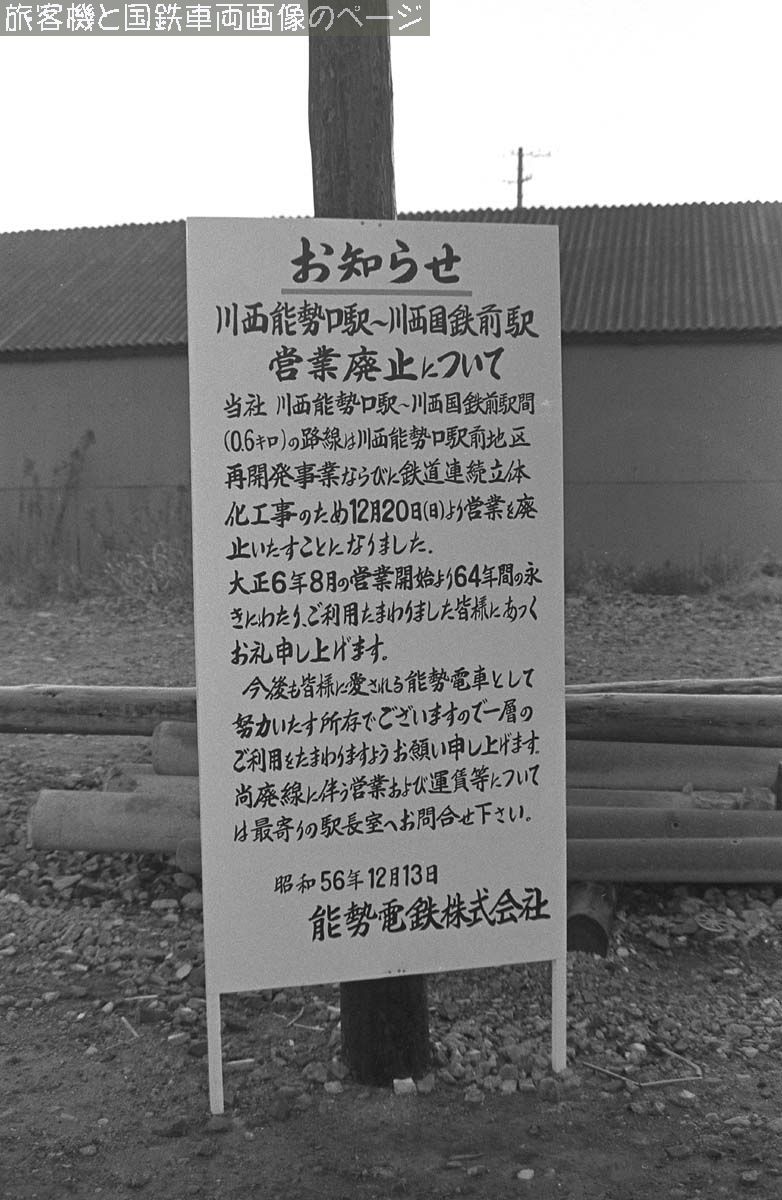 旅客機と国鉄車両画像のページ
お知らせ
川西能勢口駅～川西国鉄前駅
営業廃止について
当社 川西能勢口駅～川西国鉄前駅間
(0.6キロ)の路線は川西能勢口駅前地区
再開発事業ならびに鉄道連続立体
化工事のため12月20日(日)より営業を廃
止いたすことになりました.
大正6年8月の営業開始より64年間の永
きにわたり、ご利用たまわりました皆様にあつく
お礼申し上げます。
今後も皆様に愛される能勢電車として
努力いたす所存でございますので一層の
ご利用をたまわりますようお願い申し上げます.
尚廃線に伴う営業および運賃等について
は最寄りの駅長室へお問合せ下さい。
昭和56年12月13日
能勢電鉄株式会社